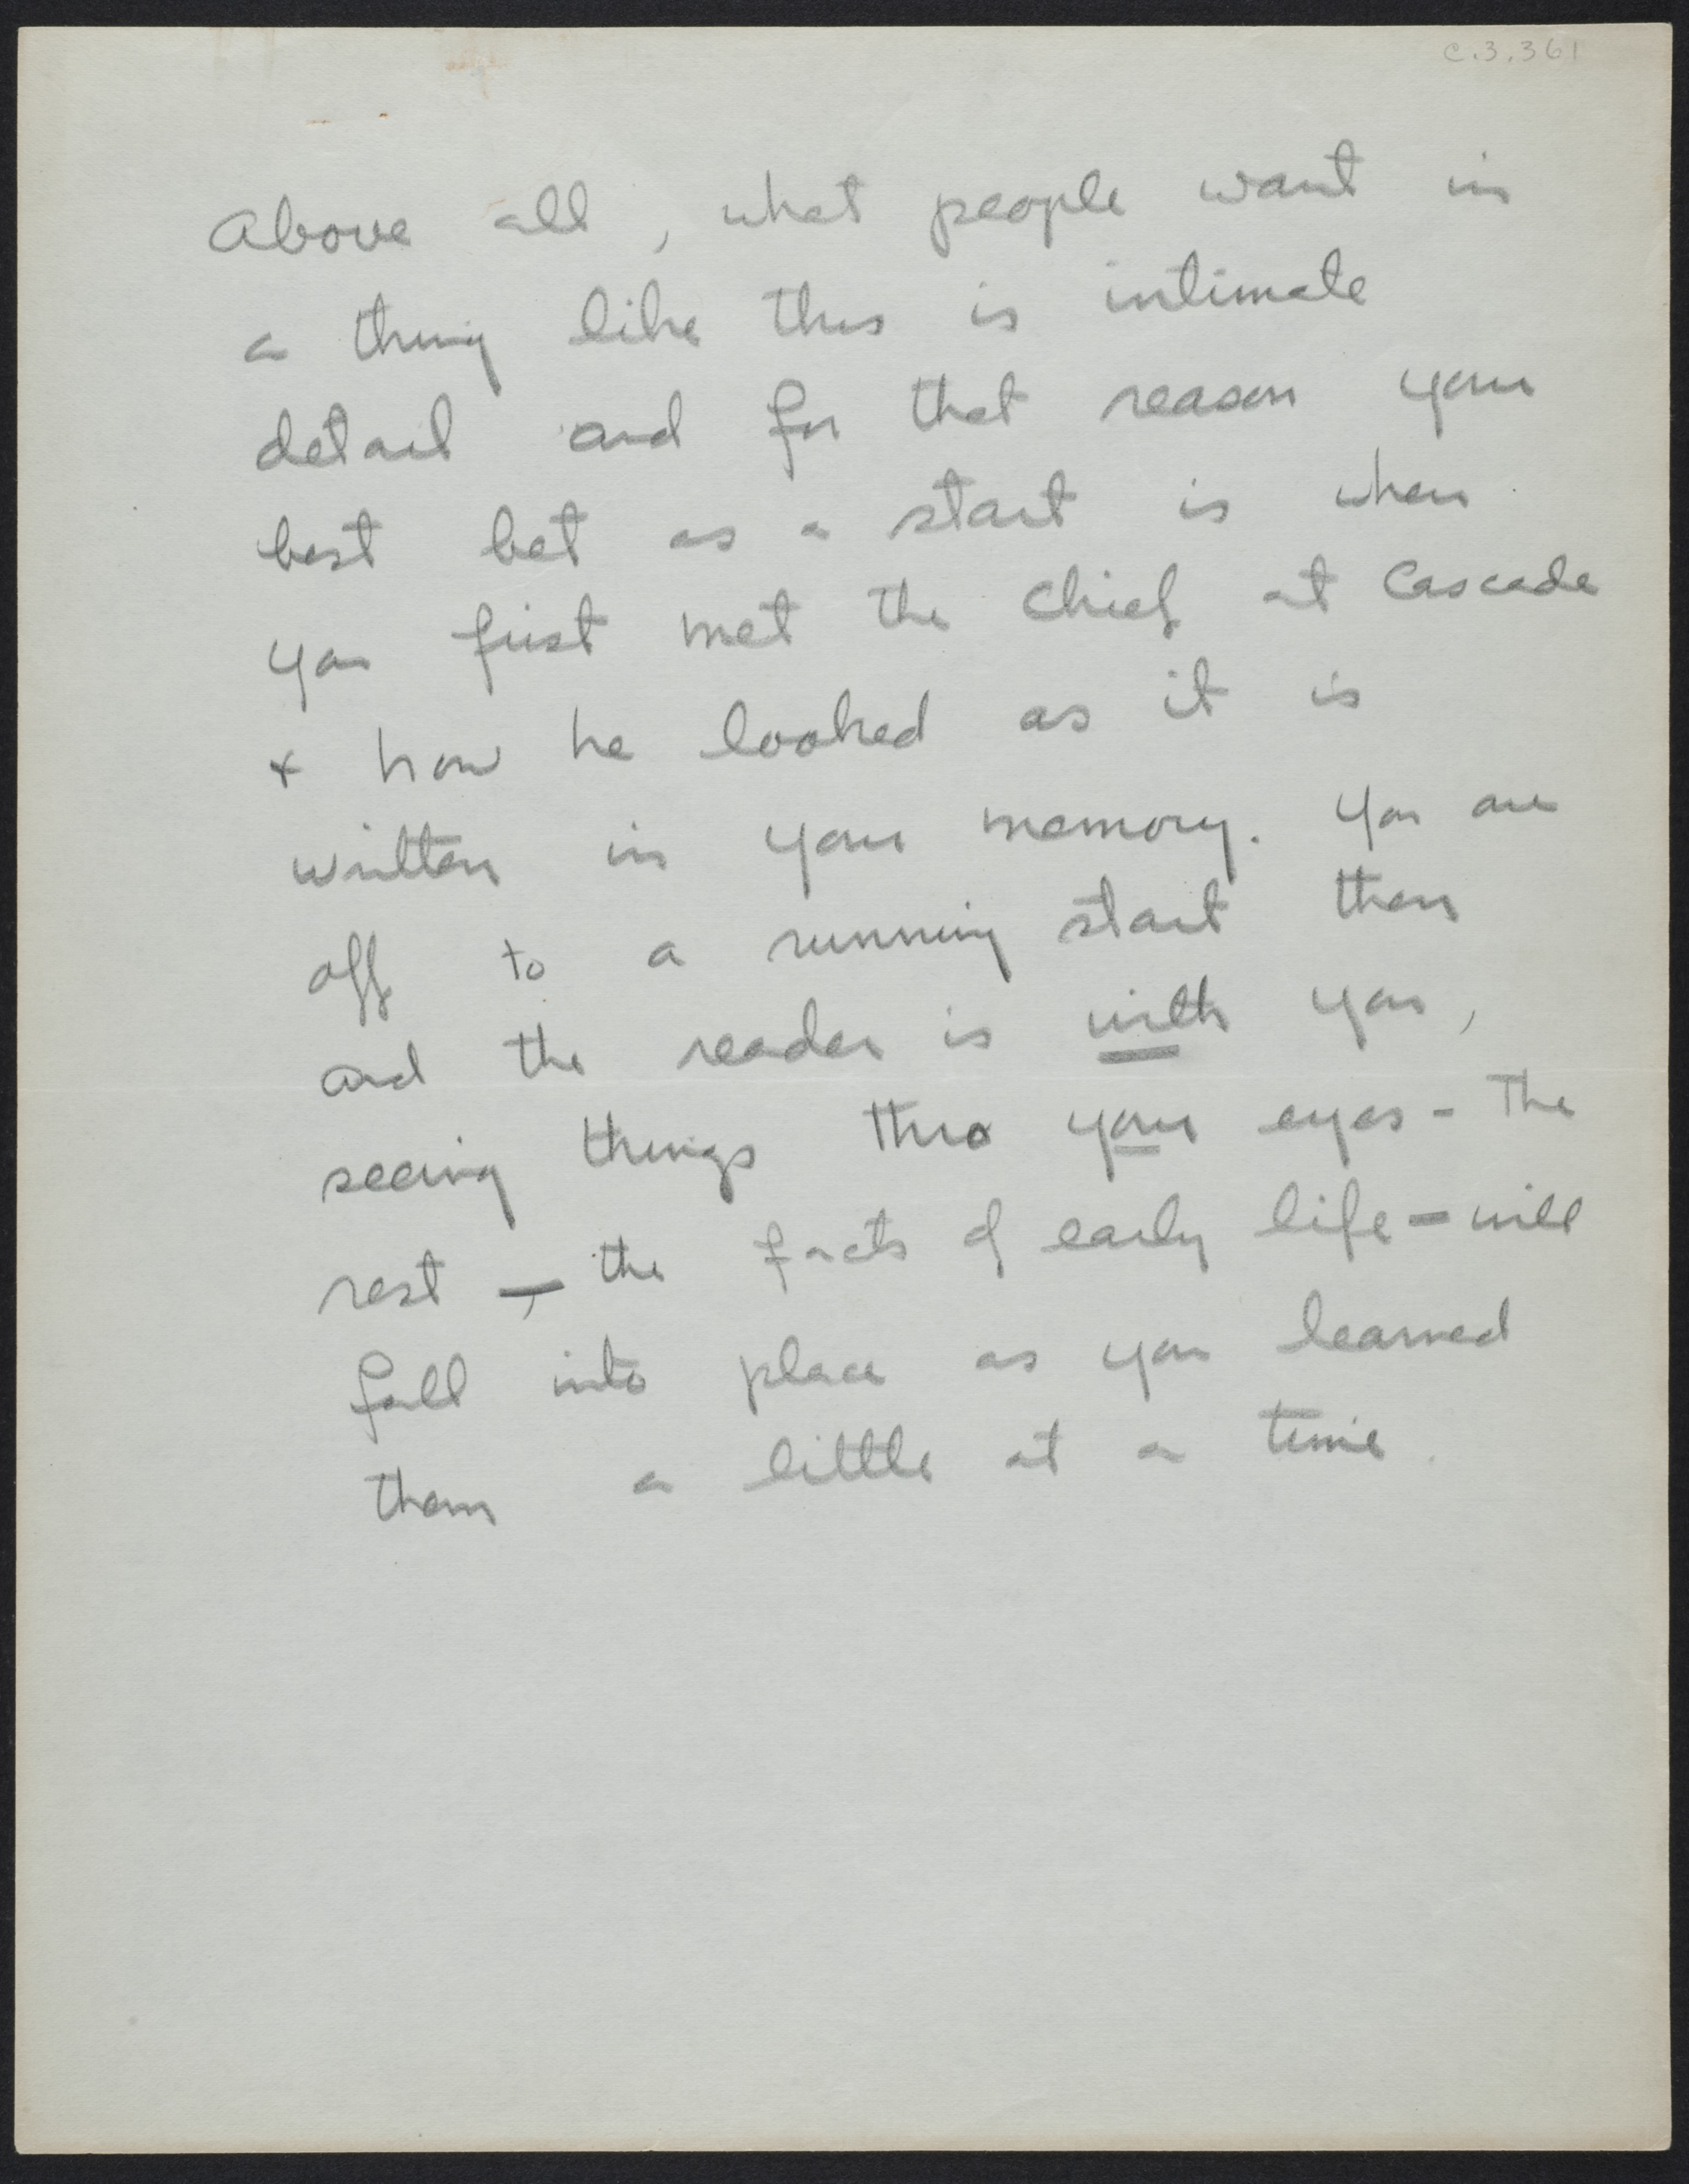 C.3.361
Above all, what people want in
a thing like this is intimate
detail and for that reason your
best bet as a start is when
you first met the Chief at Cascade
+ how he looked as it is
written in your memory. You are
off to a running start then
and the reader is with you,
seeing things thro your eyes - The
rest — the facts of early life — will
fall into place as you learned
them a little at a time.